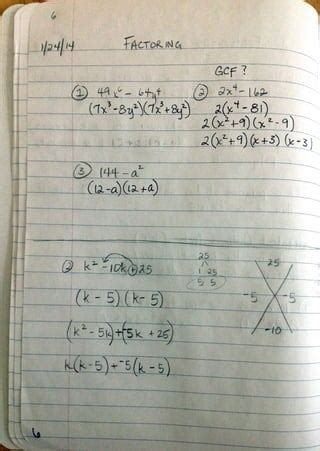 6
1/24/14 FACTORING
GCF?
① 49x⁶ - 64y⁴ ② 2x⁴ - 162
(7x³-8y²)(7x³+8y²) 2(x⁴ - 81)
2(x²+9)(x²-9)
2(x²+9)(x+3)(x-3)
③ 144 - a²
(12-a)(12+a)
② k² - 10k + 25
25
1 25
5 5
25
-5 -5
-10
(k - 5)(k - 5)
(k² - 5k) + (-5k + 25)
k(k-5) + -5(k-5)
6